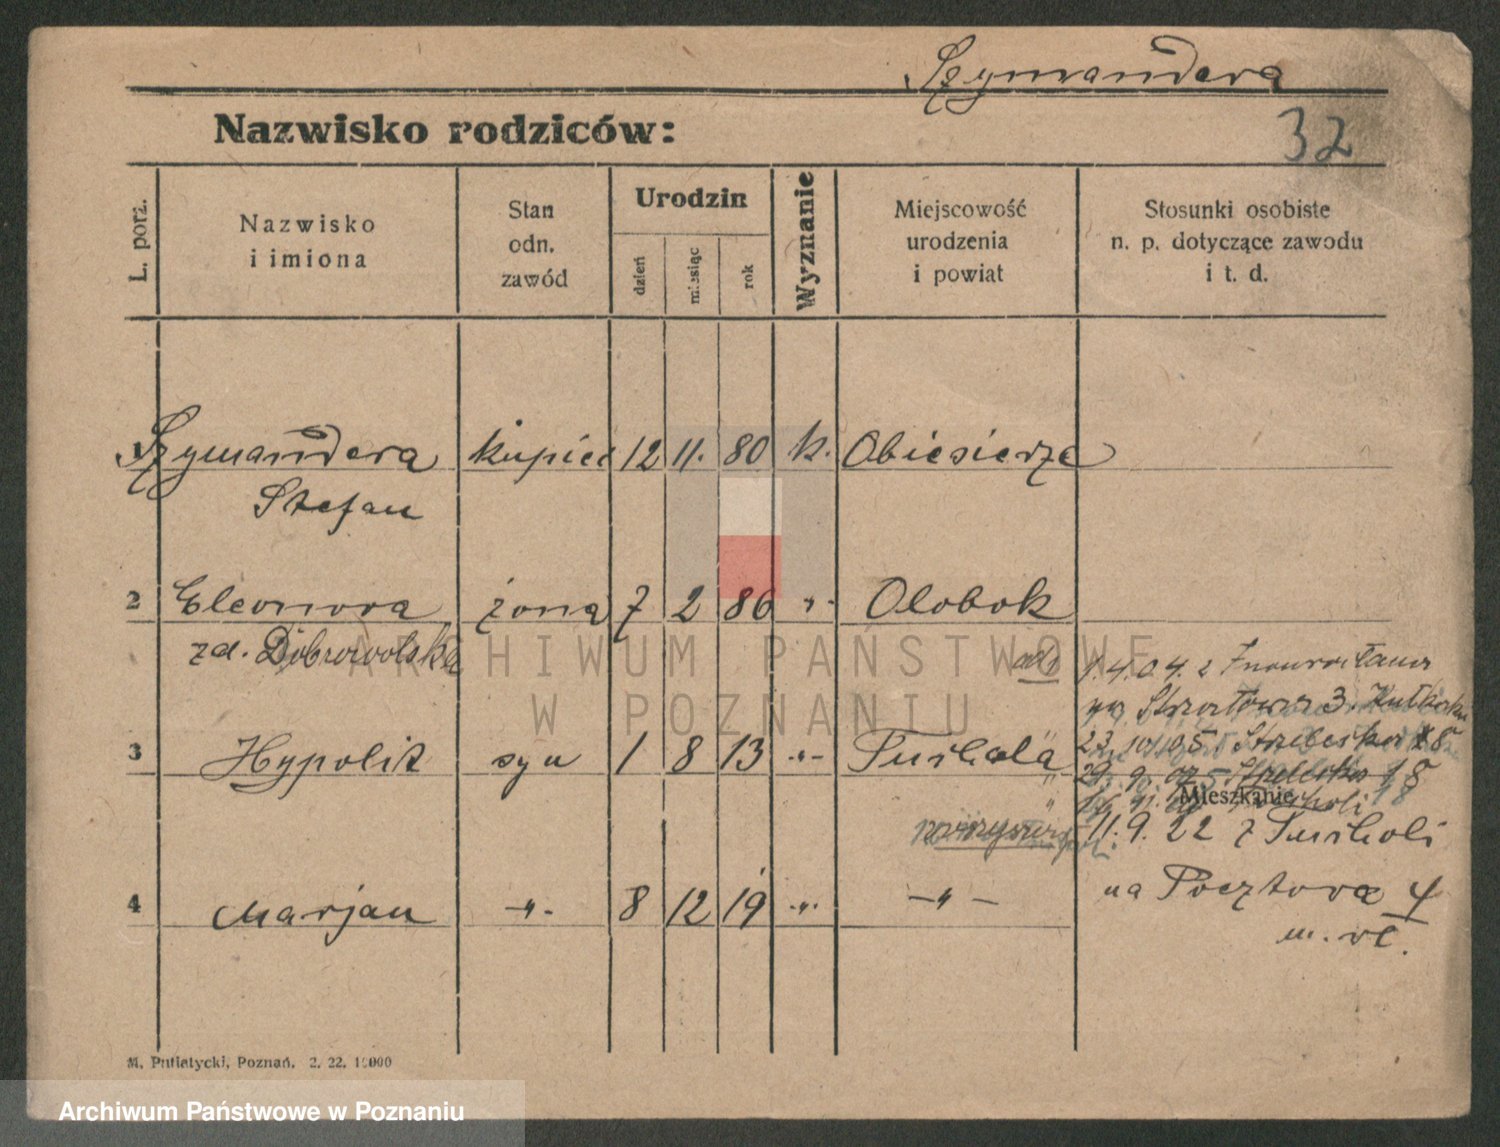 Szymandera
Nazwisko rodziców:
32
L. porz.
Nazwisko
i imiona
Stan
odn.
zawód
Urodzin
dzień
miesiąc
rok
Wyznanie
Miejscowość
urodzenia
i powiat
Stosunki osobiste
n. p. dotyczące zawodu
i t. d.
1 Szymandera kupiec 12 11. 80 k. Obiesierze
Stefan
2 Eleonora żona 7 2 86 " Olobok
zd. Dobrowolska
1.4.04. z
na 3.
23. 10. 05 18
3 Hypolit syn 1 8 13 " Tuchola
29. 9. 18
Mieszkanie
11. 9. 22 z Tucholi
4 Marjan " 8 12 19 " "
na Pocztowa 4
m. wł.
M. Putiatycki, Poznań. 2. 22. 10000
ARCHIWUM PAŃSTWOWE
W POZNANIU
Archiwum Państwowe w Poznaniu